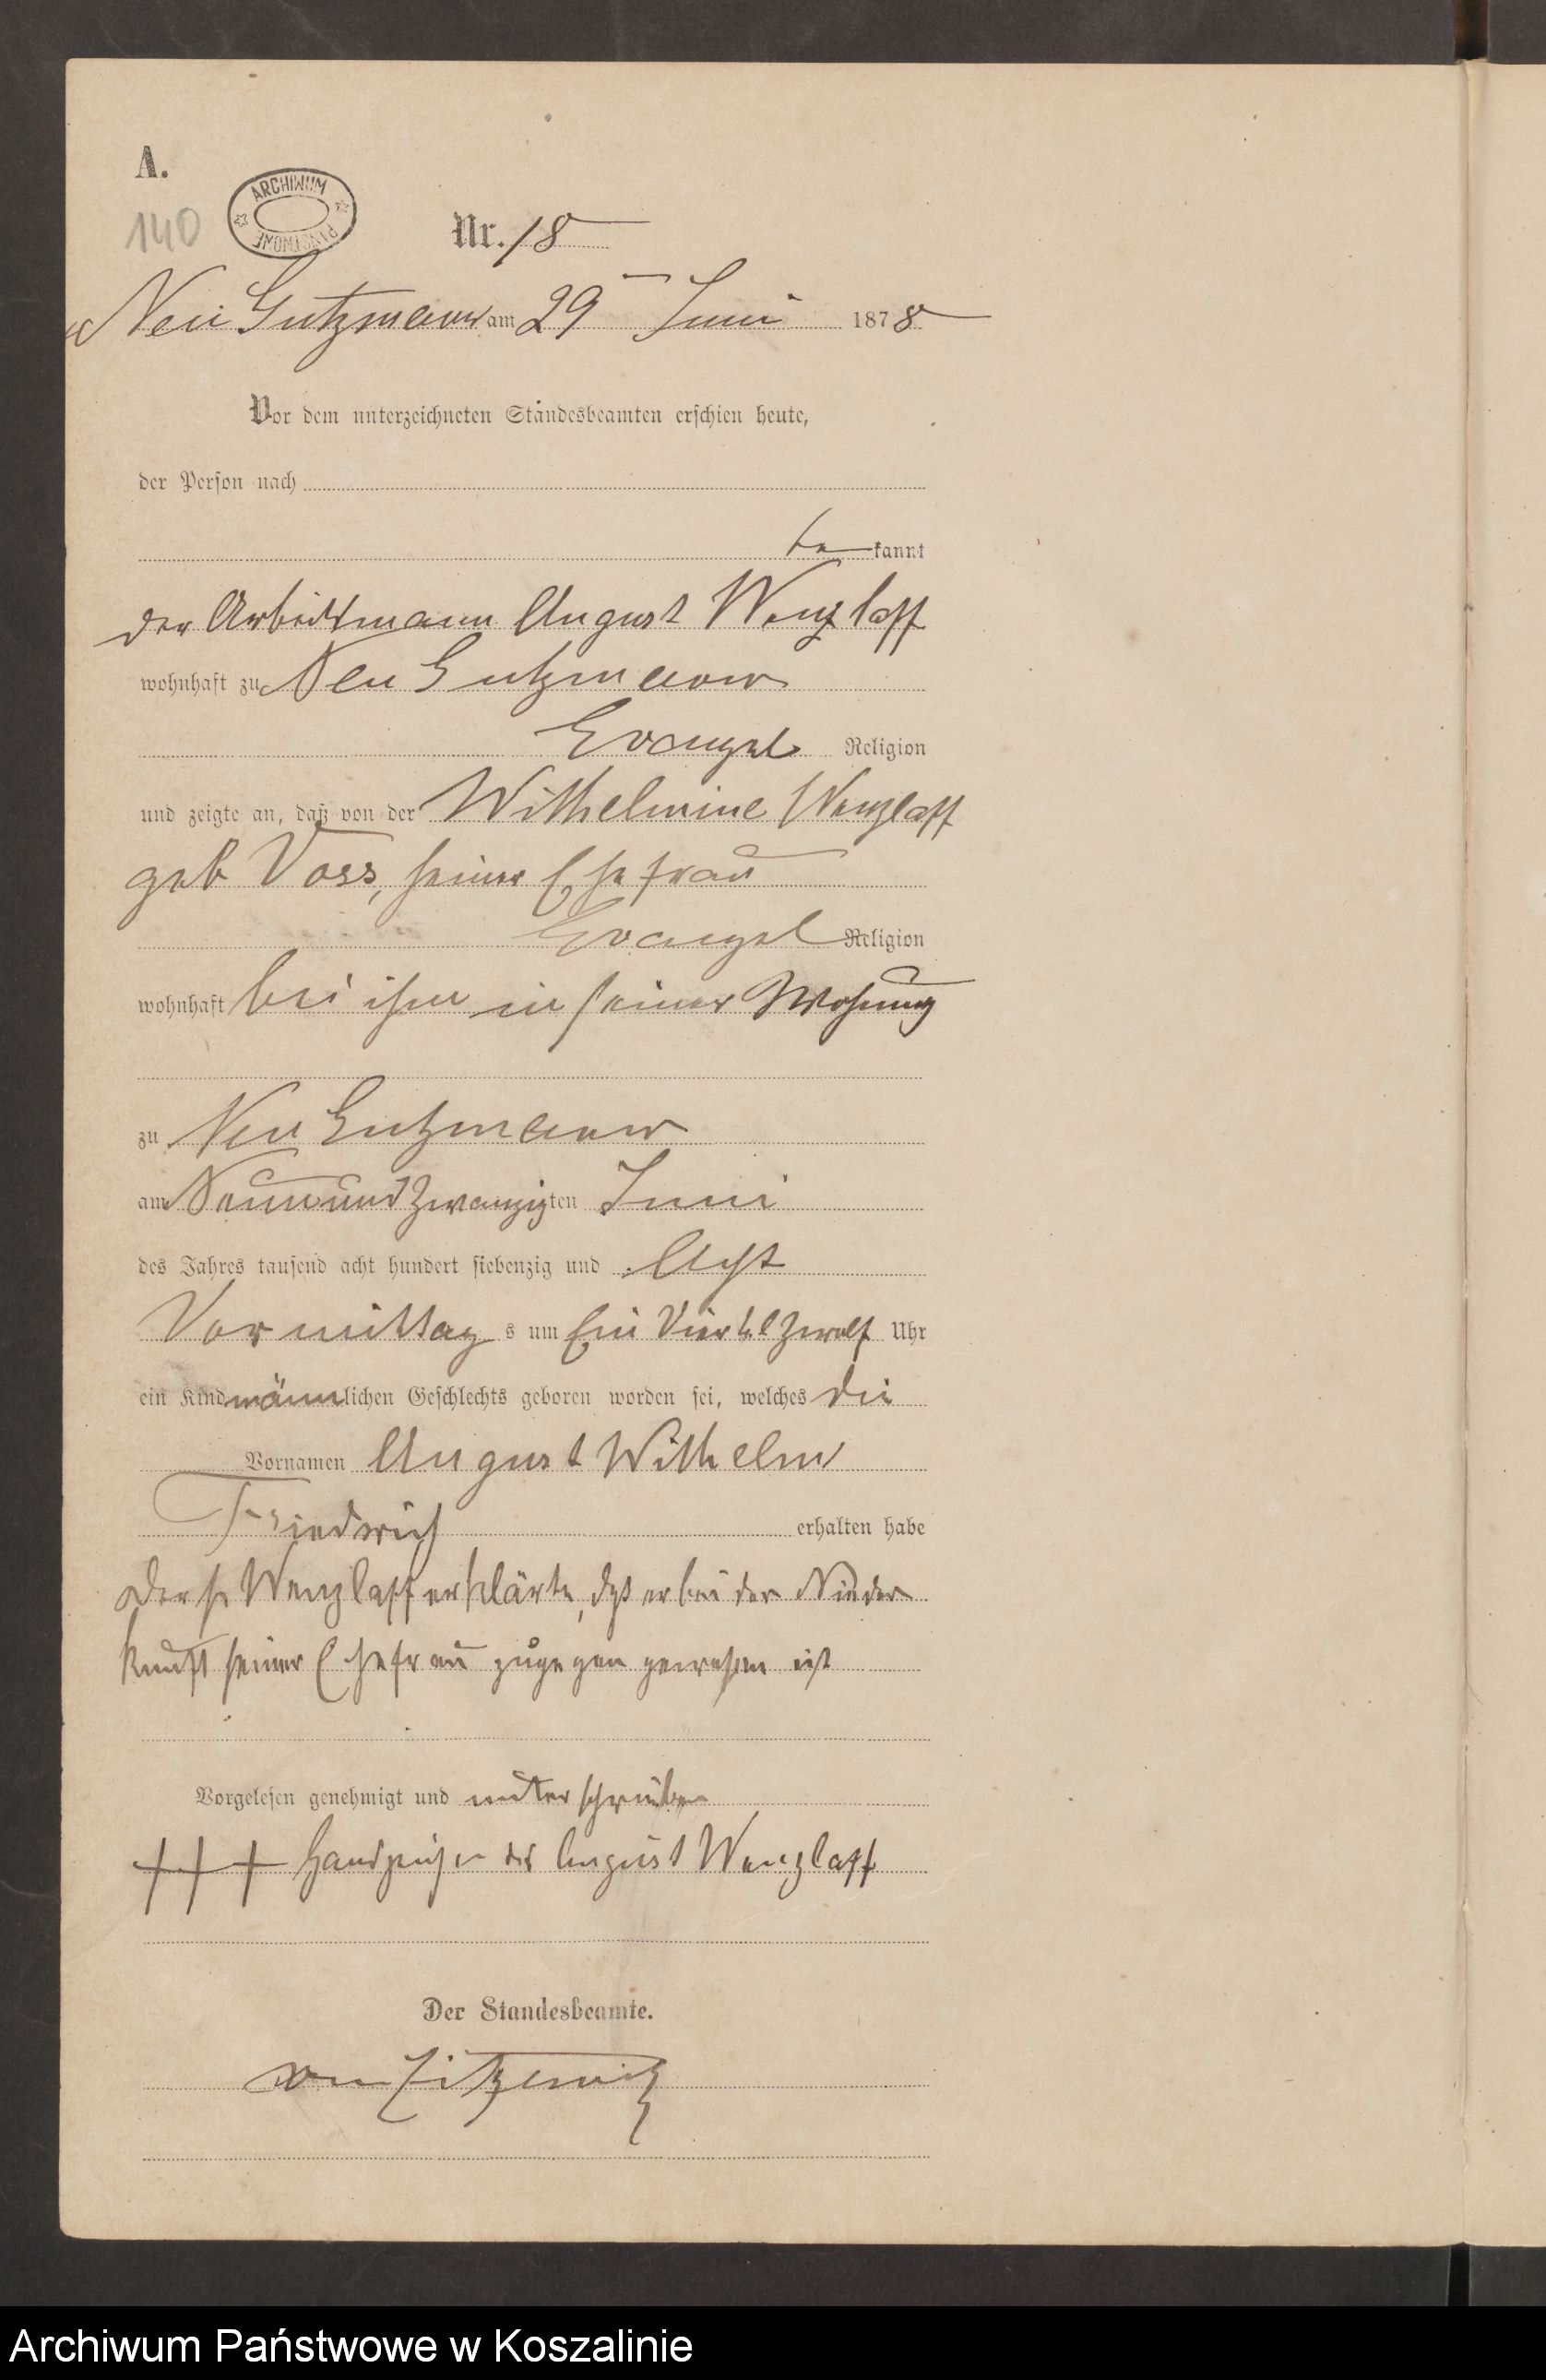 A.
140
ARCHIWUM PAŃSTWOWE
Nr. 18
Neu Gutzmerow am 29 Juni 1878
Vor dem unterzeichneten Standesbeamten erschien heute,
der Person nach
be kannt
der Arbeitsmann August Wenzlaff
wohnhaft zu Neu Gutzmerow
Evangel Religion
und zeigte an, daß von der Wilhelmine Wenzlaff
geb Voss, seiner Ehefrau
Evangel Religion
wohnhaft bei ihm in seiner Wohnung
zu Neu Gutzmerow
am Neun und Zwanzigten Juni
des Jahres tausend acht hundert siebenzig und Acht
Vormittag s um Ein Viertel Zwölf Uhr
ein Kind männlichen Geschlechts geboren worden sei, welches die
Vornamen August Wilhelm
Friedrich erhalten habe
Der Wenzlaff erklärte, daß er bei der Nieder
kunft seiner Ehefrau zugegen gewesen ist
Vorgelesen genehmigt und unterschrieben
+++ Handzeichen des August Wenzlaff
Der Standesbeamte.
von Zitzewitz
Archiwum Państwowe w Koszalinie